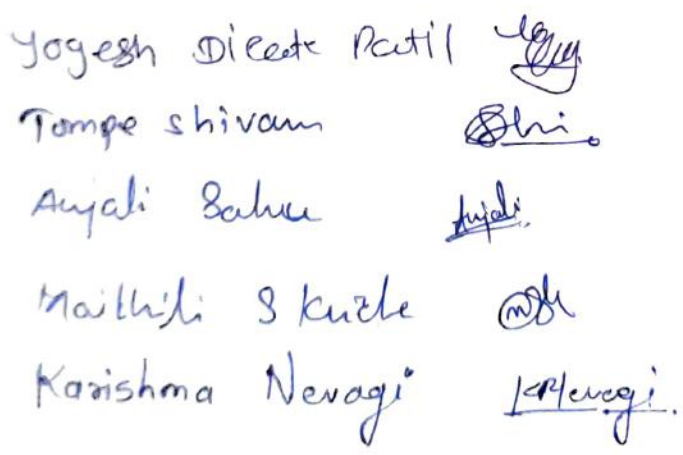 Yogesh Patil
Tompe shivam
Anjali Sahu Anjali
Maithili S
Karishma Nevagi KRNevagi.